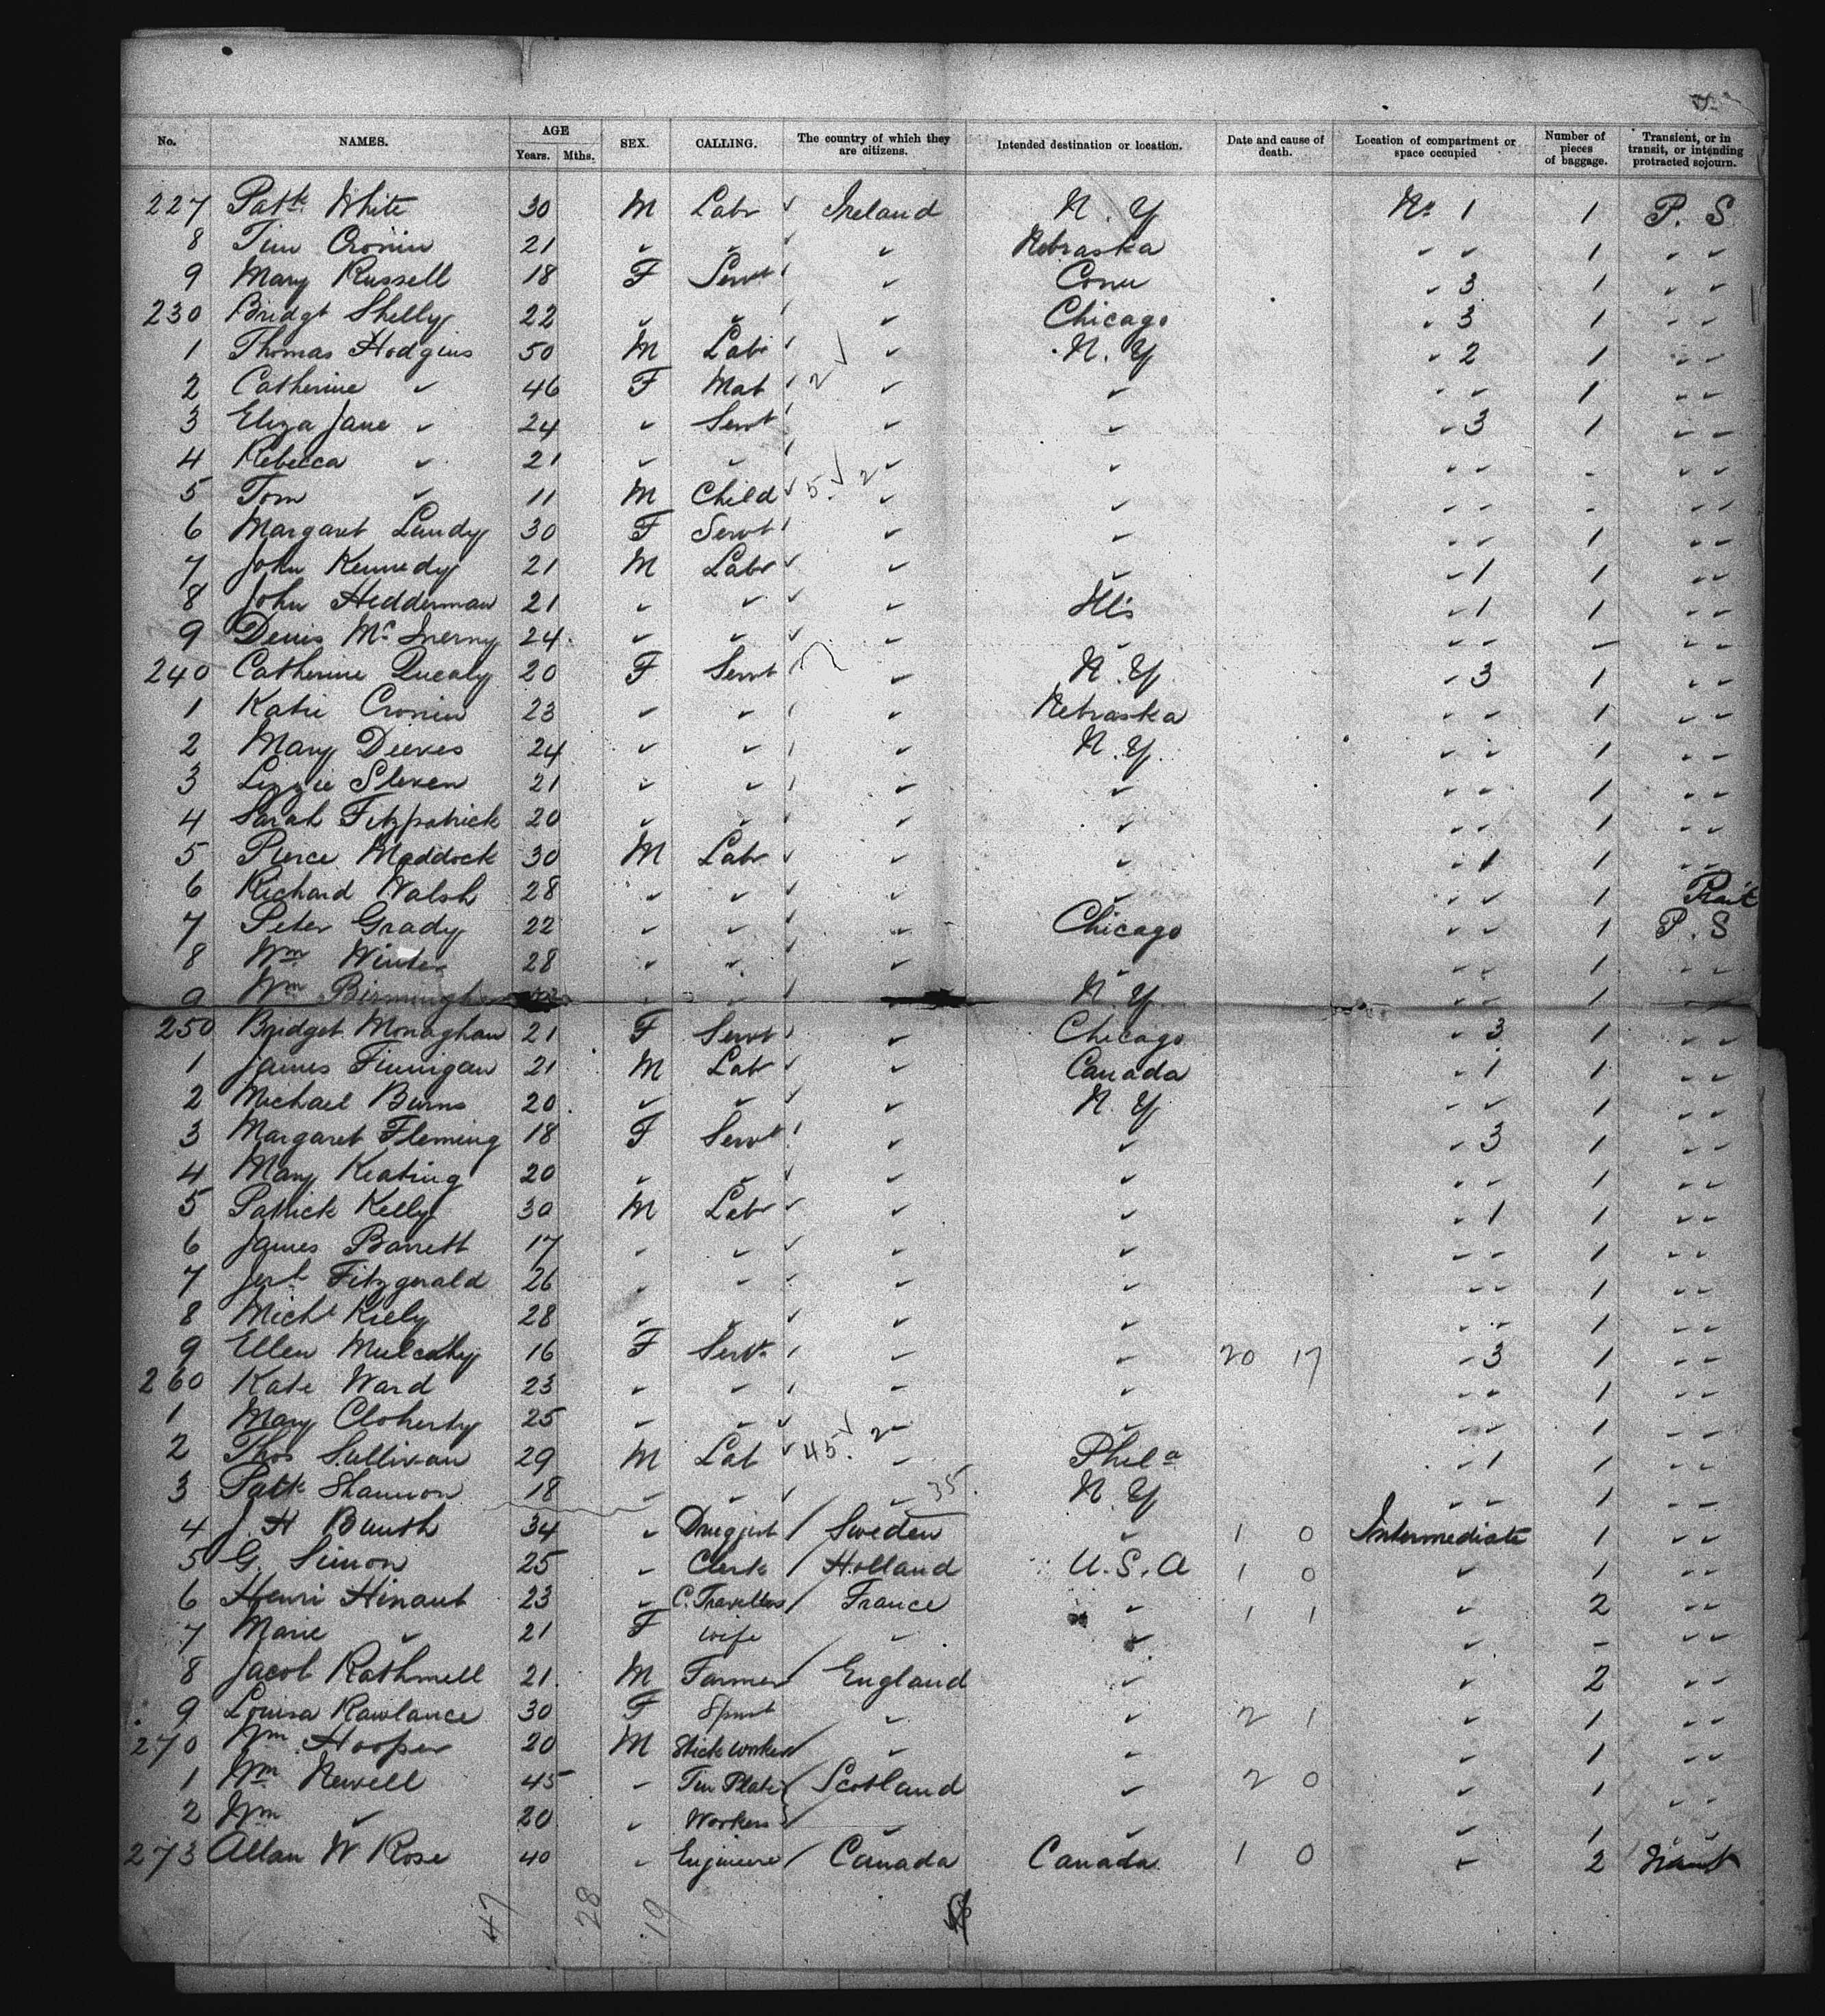 No. NAMES. AGE Years. Mths. SEX. CALLING. The country of which they are citizens. Intended destination or location. Date and cause of death. Location of compartment or space occupied Number of pieces of baggage. Transient, or in transit, or intending protracted sojourn.
227 Patk White 30 M Labr ✓ Ireland N.Y No 1 1 P. S
8 Tim Cronin 21 ✓ ✓ ✓ ✓ Nebraska ✓ ✓ 1 ✓ ✓
9 Mary Russell 18 F Servt ✓ Conn ✓ 3 1 ✓ ✓
230 Bridgt Shelly 22 ✓ ✓ ✓ Chicago ✓ 3 1 ✓ ✓
1 Thomas Hodgins 50 M Labr ✓ N.Y ✓ 2 1 ✓ ✓
2 Catherine ✓ 46 F Mat 2 ✓ ✓ ✓ ✓ ✓ 1 ✓ ✓
3 Eliza Jane ✓ 24 ✓ Servt ✓ ✓ ✓ 3 1 ✓ ✓
4 Rebecca ✓ 21 ✓ ✓ ✓ ✓ ✓ ✓ - ✓ ✓
5 Tom ✓ 11 M Child ✓ 5 ✓ 2 ✓ ✓ ✓ ✓ - ✓ ✓
6 Margaret Lundy 30 F Servt ✓ ✓ ✓ ✓ 1 ✓ ✓
7 John Kennedy 21 M Labr ✓ ✓ ✓ ✓ 1 1 ✓ ✓
8 John Hedderman 21 ✓ ✓ ✓ ✓ Ills ✓ 1 1 ✓ ✓
9 Denis Mc Inerny 24 ✓ ✓ ✓ ✓ ✓ ✓ ✓ - ✓ ✓
240 Catherine Quealy 20 F Servt ✓ N.Y ✓ 3 1 ✓ ✓
1 Katie Cronin 23 ✓ ✓ ✓ Nebraska ✓ ✓ 1 ✓ ✓
2 Mary Deeves 24 ✓ ✓ ✓ N.Y. ✓ ✓ 1 ✓ ✓
3 Lizzie Sleven 21 ✓ ✓ ✓ ✓ ✓ ✓ 1 ✓ ✓
4 Sarah Fitzpatrick 20 ✓ ✓ ✓ ✓ ✓ ✓ 1 ✓ ✓
5 Pierce Maddock 30 M Labr ✓ ✓ ✓ ✓ 1 1 ✓ ✓
6 Richard Walsh 28 ✓ ✓ ✓ ✓ ✓ ✓ ✓ 1
7 Peter Grady 22 ✓ ✓ ✓ ✓ Chicago ✓ ✓ 1 P. S
8 Wm Winter 28 ✓ ✓ ✓ ✓ ✓ ✓ ✓ 1 ✓ ✓
9 Wm ✓ ✓ ✓ N.Y ✓ ✓ 1 ✓ ✓
250 Bridget Monaghan 21 F Servt ✓ Chicago ✓ 3 1 ✓ ✓
1 James Finnigan 21 M Labr ✓ ✓ Canada ✓ 1 1 ✓ ✓
2 Michael Burns 20 ✓ ✓ ✓ ✓ N.Y ✓ ✓ 1 ✓ ✓
3 Margaret Fleming 18 F Servt ✓ ✓ ✓ 3 1 ✓ ✓
4 Mary Keating 20 ✓ ✓ ✓ ✓ ✓ ✓ ✓ 1 ✓ ✓
5 Patrick Kelly 30 M Labr ✓ ✓ ✓ ✓ 1 1 ✓ ✓
6 James Barrett 17 ✓ ✓ ✓ ✓ ✓ ✓ ✓ 1 ✓ ✓
7 Jerh Fitzgerald 26 ✓ ✓ ✓ ✓ ✓ ✓ 1 ✓ ✓
8 Michl Kiely 28 ✓ ✓ ✓ ✓ ✓ ✓ ✓ 1 ✓ ✓
9 Ellen Mulcahy 16 F Servt ✓ ✓ 20 17 ✓ 3 1 ✓ ✓
260 Kate Ward 23 ✓ ✓ ✓ ✓ ✓ ✓ 1 ✓ ✓
1 Mary Cloherty 25 ✓ ✓ ✓ ✓ ✓ ✓ ✓ 1 ✓ ✓
2 Thos Sullivan 29 M Lab ✓ 45 ✓ 2 ✓ Phila ✓ 1 1 ✓ ✓
3 Patk Shannon 18 ✓ ✓ ✓ ✓ 35 N.Y ✓ ✓ 1 ✓ ✓
4 J. H 34 ✓ Druggist / Sweden ✓ 1 0 Intermediate 1 ✓ ✓
5 G. Simon 25 ✓ Clerk / Holland U.S.A 1 0 ✓ 1 ✓ ✓
6 Henri Hinaut 23 ✓ C. Traveller / France ✓ 1 1 ✓ 2 ✓ ✓
7 Marie ✓ 21 F wife ✓ ✓ ✓ - ✓ ✓
8 Jacob Rathmell 21 M Farmer / England ✓ ✓ 2 ✓ ✓
9 Louisa Rawlance 30 F Spinst ✓ ✓ 2 1 ✓ 1 ✓ ✓
270 Wm Hooper 20 M Stick worker / ✓ ✓ ✓ 1 ✓ ✓
1 Wm Newell 45 ✓ Tin Plate Scotland ✓ 2 0 ✓ 1 ✓ ✓
2 Wm ✓ 20 ✓ Workers ✓ ✓ ✓ 1 ✓ ✓
273 Allan W Rose 40 ✓ Engineer / Canada Canada 1 0 ✓ 2 Transit
47 28 19